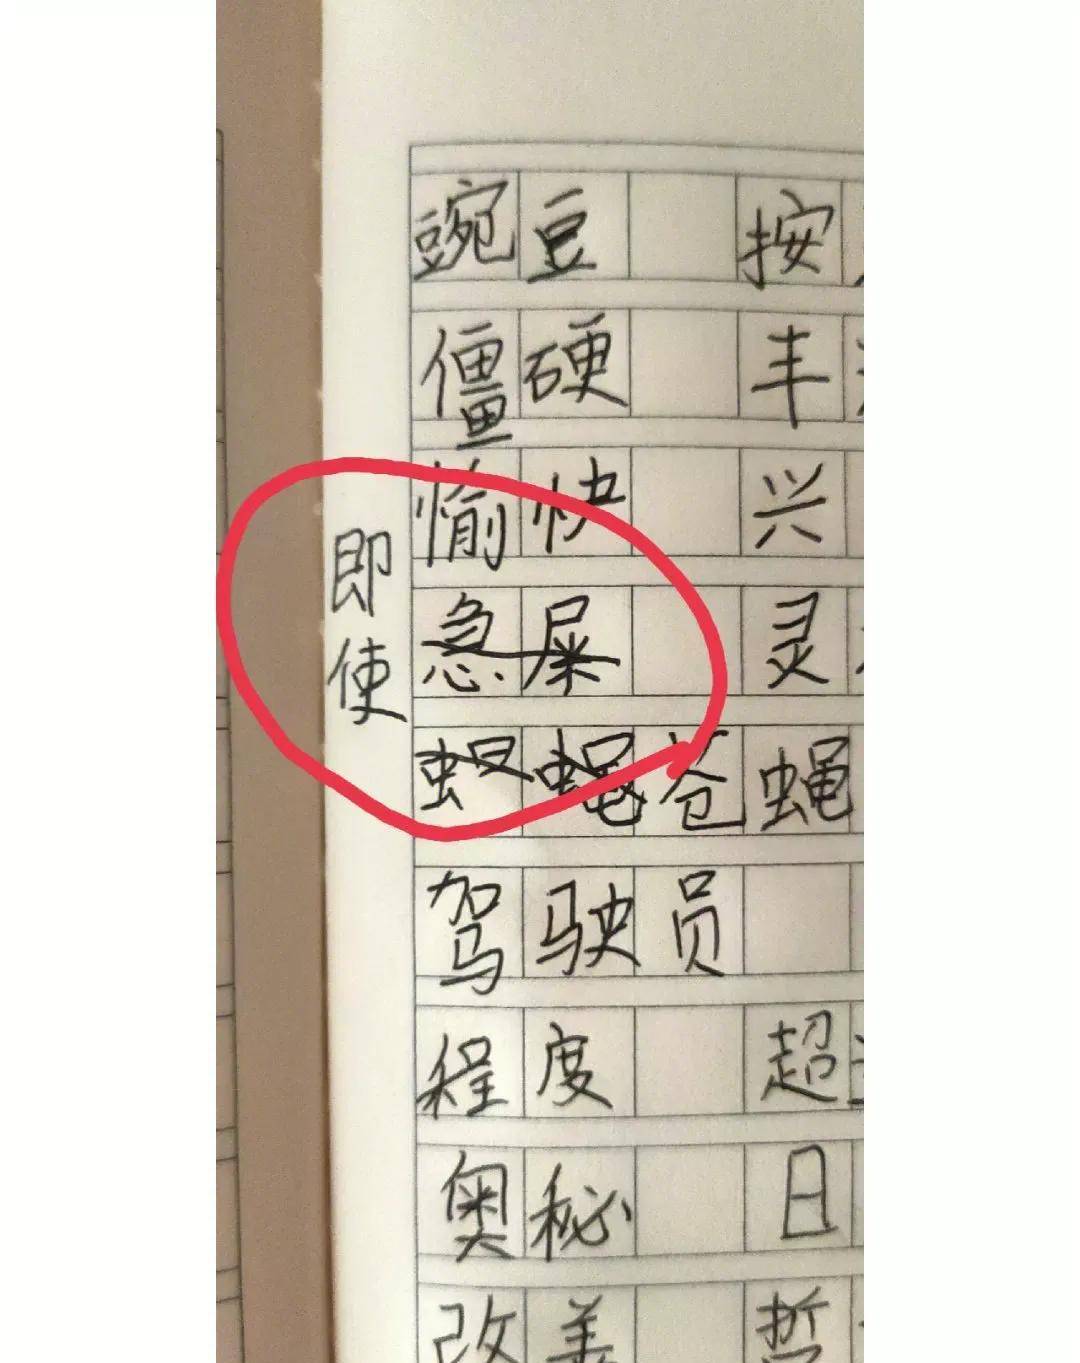 豌豆 按
僵硬 丰
愉快 兴
即使
急屎 灵
苍蝇
驾驶员
程度 超
奥秘 日
改善 哲